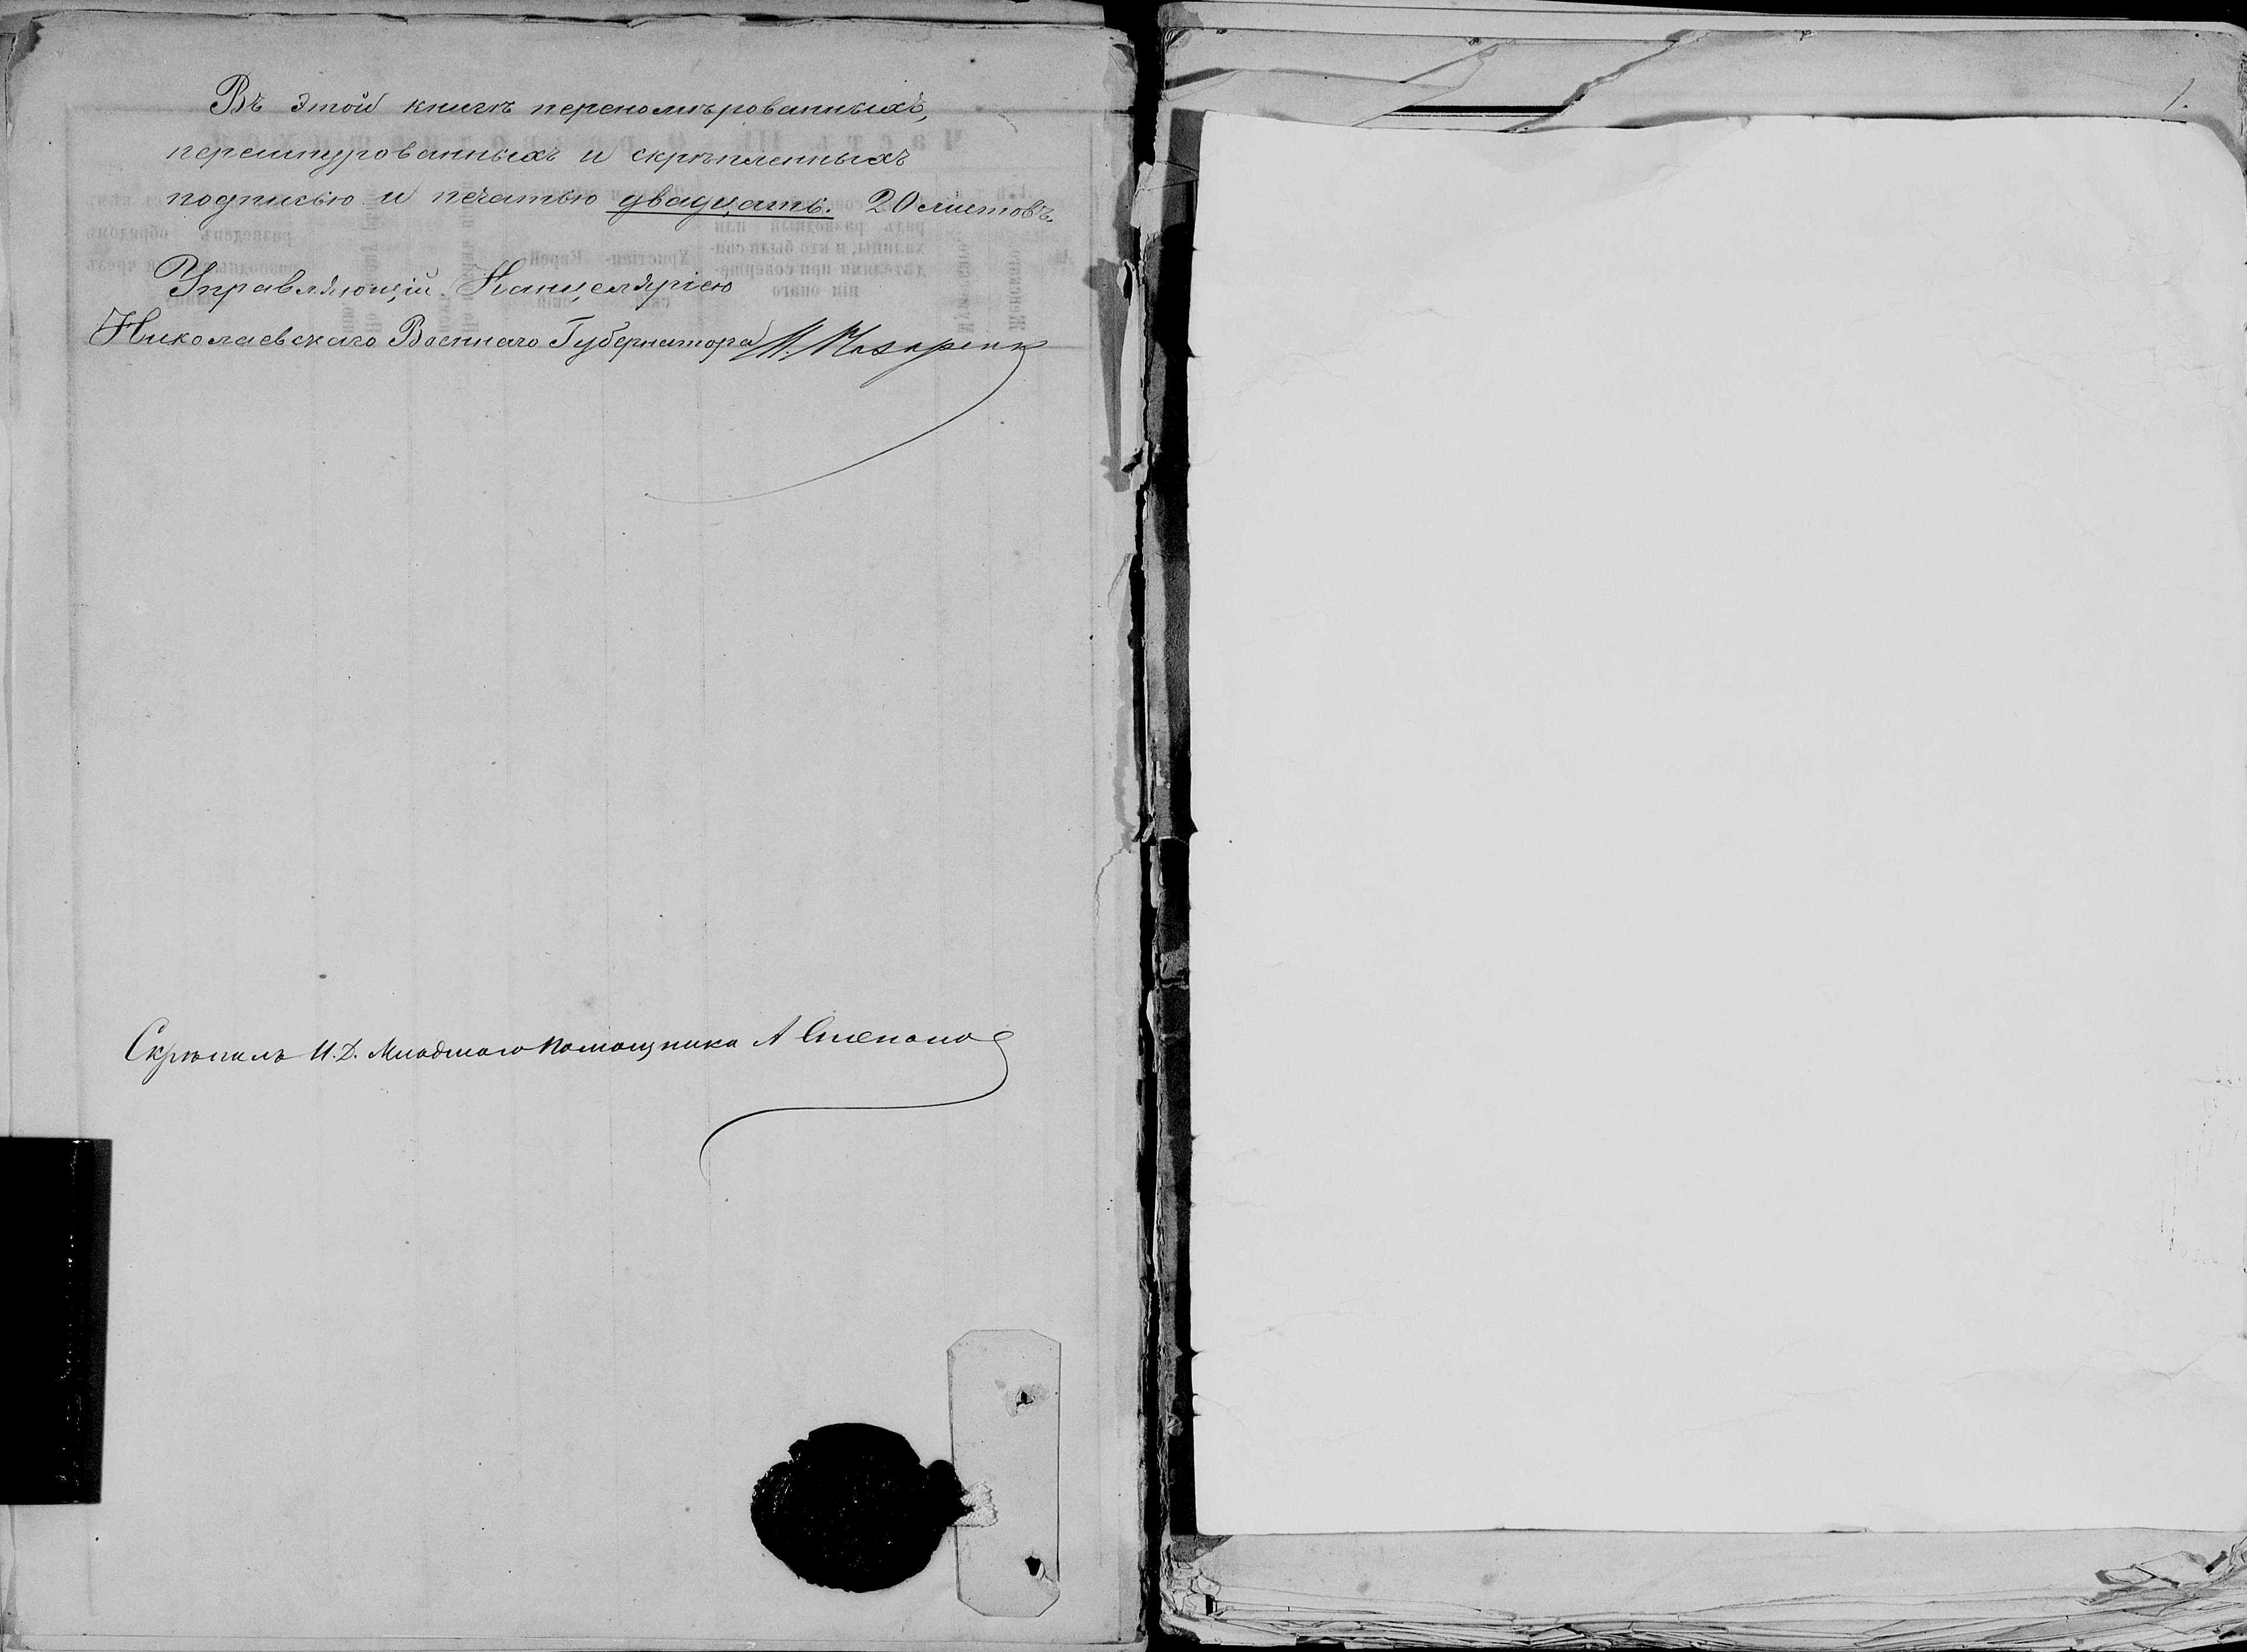 Въ этой книгѣ переномѣрованныхъ,
перешнурованныхъ и скрѣпленныхъ
подписью и печатью двадцать. 20 листовъ.
Управляющій Канцеляріею
Николаевскаго Военнаго Губернатора
Скрѣпилъ И.Д. Младшаго Помощника А
1.